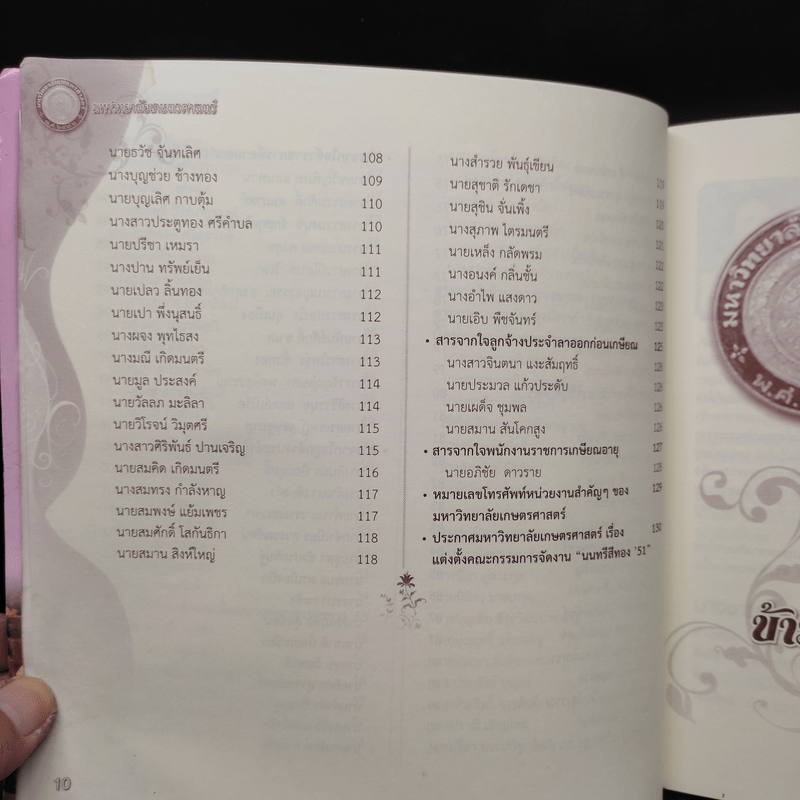 มหาวิทยาลัยเกษตรศาสตร์
นายธวัช จันทเลิศ 108
นางบุญช่วย ช้างทอง 109
นายบุญเลิศ กาบตุ้ม 110
นางสาวประตูทอง ศรีคำบล 110
นายปรีชา เหมรา 111
นางปาน ทรัพย์เย็น 111
นายเปลว ลิ้นทอง 112
นายเปา พึ่งนุสนธิ์ 112
นางผจง พุทไธสง 113
นางมณี เกิดมนตรี 113
นายมูล ประสงค์ 114
นายวัลลภ มะลิลา 114
นายวิโรจน์ วิมุตศรี 115
นางสาวศิริพันธ์ ปานเจริญ 115
นายสมคิด เกิดมนตรี 116
นางสมทรง กำลังหาญ 117
นายสมพงษ์ แย้มเพชร 117
นายสมศักดิ์ โสกันธิกา 118
นายสมาน สิงห์ใหญ่ 118
นางสำรวย พันธุ์เขียน
นายสุชาติ รักเดชา 119
นายสุชิน จั่นเพิ้ง 119
นางสุภาพ ไตรมนตรี 120
นายเหล็ง กลัดพรม 121
นางอนงค์ กลิ่นชั้น 122
นางอำไพ แสงดาว 122
นายเอิบ พืชจันทร์ 123
• สารจากใจลูกจ้างประจำลาออกก่อนเกษียณ 125
นางสาวจินตนา แงะสัมฤทธิ์
นายประมวล แก้วประดับ 126
นายเผด็จ ชุมพล 126
นายสมาน สันโคกสูง 126
• สารจากใจพนักงานราชการเกษียณอายุ 127
นายอภิชัย ดาวราย 128
• หมายเลขโทรศัพท์หน่วยงานสำคัญๆ ของ 129
มหาวิทยาลัยเกษตรศาสตร์
• ประกาศมหาวิทยาลัยเกษตรศาสตร์ เรื่อง 130
แต่งตั้งคณะกรรมการจัดงาน "นนทรีสีทอง '51"
10
มหาวิทยาลัย
พ.ศ.